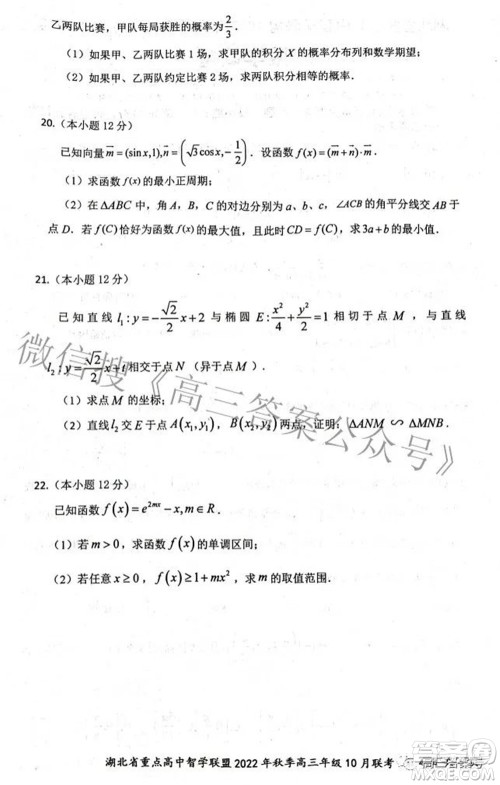 乙两队比赛，甲队每局获胜的概率为2/3.
（1）如果甲、乙两队比赛 1 场，求甲队的积分 X 的概率分布列和数学期望；
（2）如果甲、乙两队约定比赛 2 场，求两队积分相等的概率．
20.（本小题 12 分）
已知向量 m⃗=(sinx,1),n⃗=(√3cosx,-1/2)．设函数 f(x)=(m⃗+n⃗)·m⃗．
（1）求函数 f(x) 的最小正周期；
（2）在 ΔABC 中，角 A、B、C 的对边分别为 a、b、c，∠ACB 的角平分线 CD 交 AB 于
点 D．若 f(C) 恰好为函数 f(x) 的最大值，且此时 CD=f(C)，求 3a+b 的最小值．
21.（本小题 12 分）
已知直线 l₁:y=-√2/2x+2 与椭圆 E:x²/4+y²/2=1 相切于点 M，与直线
l₂:y=√2/2x+t 相交于点 N（异于点 M）.
（1）求点 M 的坐标；
（2）直线 l₂ 交 E 于点 A(x₁,y₁)，B(x₂,y₂) 两点，证明：ΔANM ∽ ΔMNB．
22.（本小题 12 分）
已知函数 f(x)=e²ᵐˣ-x,m∈R．
（1）若 m>0，求函数的单调区间；
（2）若任意 x≥0，f(x)≥1+mx²，求 m 的取值范围．
微信搜《高三答案公众号》
湖北省重点高中智学联盟 2022 年秋季高三年级 10 月联考